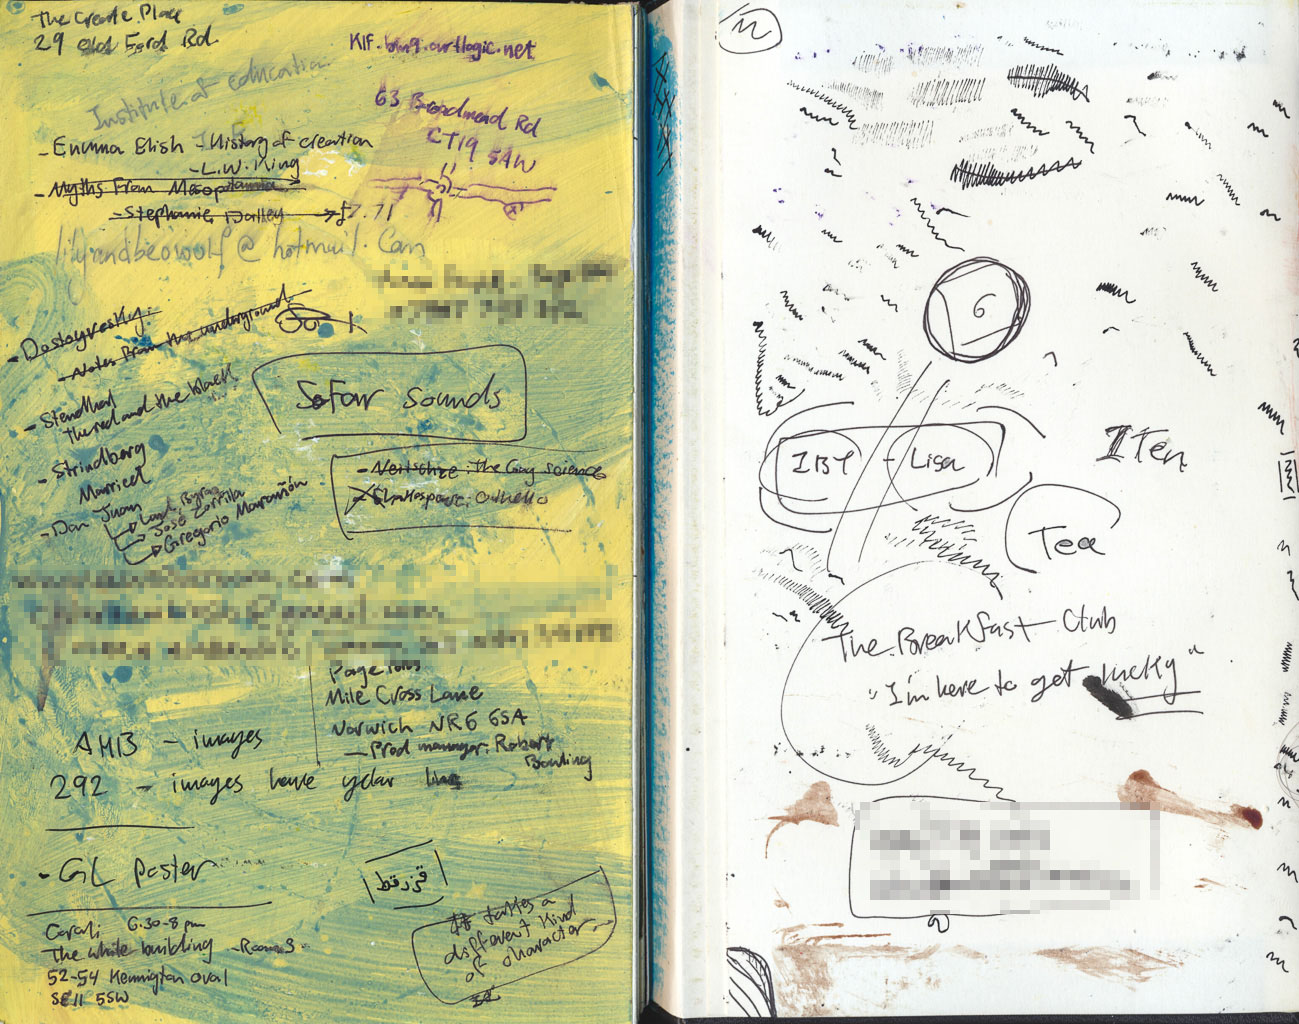 The Create Place
29 Old Ford Rd
KIF.bm9.artlogic.net
Institute of education
63 Broadmead Rd
CT19 5AW
- Enuma Elish - History of creation
- L.W. King
- Myths From Mesopotamia
- Stephanie Dalley → £7.71
@ hotmail.com
- Dostoyevsky:
- Notes from the underground
- Stendhal
the red and the black
- Strindberg
Married
- Don Juan
Lord Byron
José Zorrilla
Gregorio Marañón
SoFar Sounds
- Neitschze: the Gay science
Shakespare: Othello
Mile Cross Lane
Norwich NR6 6SA
- Prod manager: Robert
Bowling
AHB - images
292 - images have
- GL poster
It takes a
different kind
of character
6.30-8 pm
The white building - Room 3
52-54 Kennington Oval
SE11 5SW
6
IBY - Lisa
ITen
Tea
The Breakfast Club
"I'm here to get lucky"